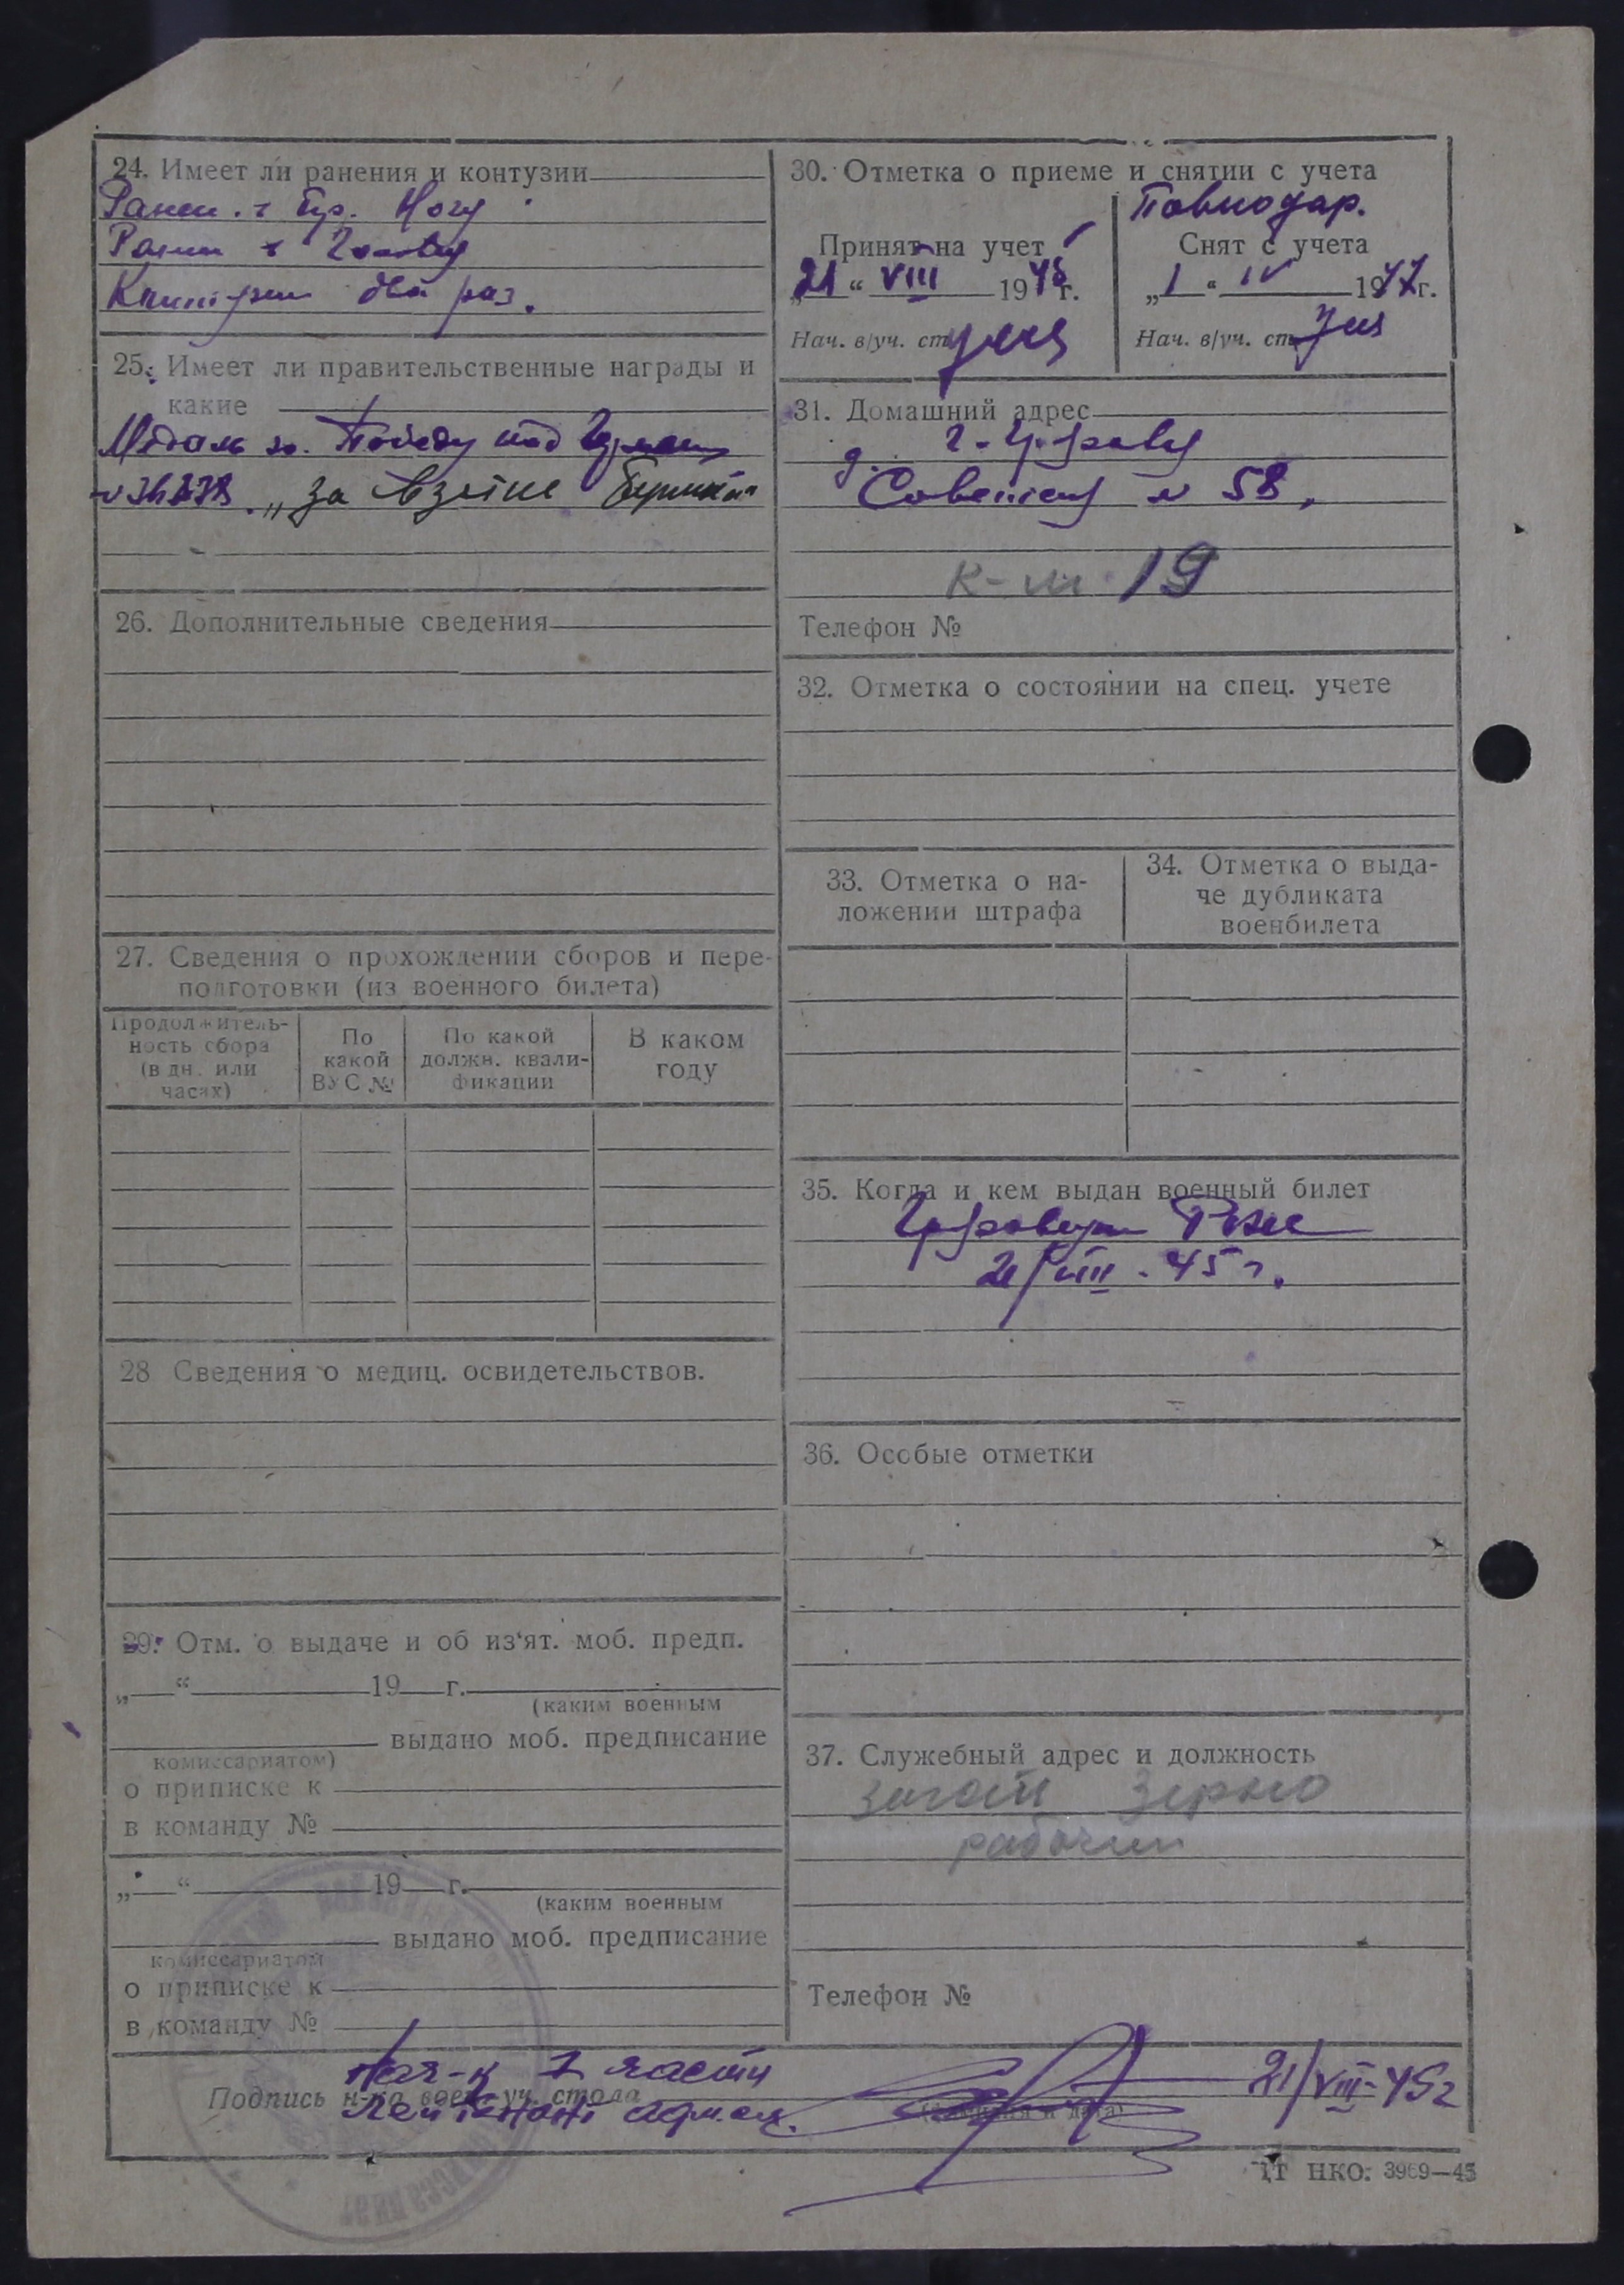 24. Имеет ли ранения и контузии
Ранен
Ногу
Ранен в Голову
два раз.
25. Имеет ли правительственные награды и
какие
Медаль за Победу над
„За взятие Берлина“
26. Дополнительные сведения
27. Сведения о прохождении сборов и пере-
подготовки (из военного билета)
Продолжитель-
ность сбора
(в дн. или
часах)
По
какой
ВУС №
По какой
должн. квали-
фикации
В каком
году
28 Сведения о медиц. освидетельствов.
29. Отм. о выдаче и об из‘ят. моб. предп.
„ “ 19 г.
(каким военным
выдано моб. предписание
комиссариатом)
о приписке к
в команду №
„ “ 19 г.
(каким военным
выдано моб. предписание
комиссариатом
о приписке к
в команду №
30. Отметка о приеме и снятии с учета
Принят на учет
„21“ VIII 1945г.
Нач. в/уч. ст
Снят с учета
„1“ IV 1947г.
Нач. в/уч. ст
31. Домашний адрес
№ 58,
19
Телефон №
32. Отметка о состоянии на спец. учете
33. Отметка о на-
ложении штрафа
34. Отметка о выда-
че дубликата
военбилета
35. Когда и кем выдан военный билет
21/VIII-45 г.
36. Особые отметки
37. Служебный адрес и должность
Загот Зерно
рабочий
Телефон №
Нач-к 1 части
Подпись н-ка воен.-уч. стола
Лейтенант адм.сл.
21/VIII-45г
(фамилия и дата)
ІТ НКО. 3969—45